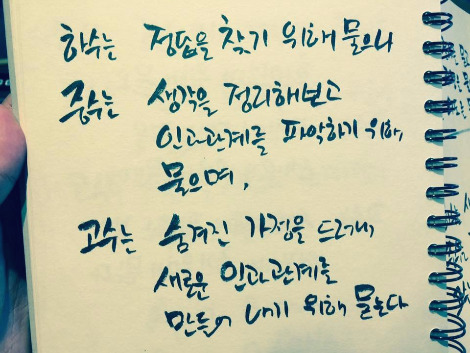 하수는 정답을 찾기 위해 물으나
중수는 생각을 정리해보고
인과관계를 파악하기 위해,
물으며,
고수는 숨겨진 가정을 드러내,
새로운 인과관계를
만들어 내기 위해 묻는다